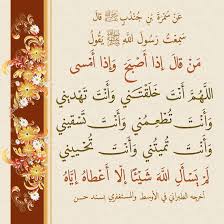 عَنْ سَمُرَةَ بْنِ جُنْدُبٍ ﷺ قَالَ
سَمِعْتُ رَسُولَ اللَّهِ ﷺ يَقُولُ
مَنْ قَالَ إِذَا أَصْبَحَ وَإِذَا أَمْسَى
اللَّهُمَّ أَنْتَ خَلَقْتَنِي وَأَنْتَ تَهْدِينِي
وَأَنْتَ تُطْعِمُنِي وَأَنْتَ تَسْقِينِي
وَأَنْتَ تُمِيتُنِي وَأَنْتَ تُحْيِينِي
لَمْ يَسْأَلِ اللَّهَ شَيْئًا إِلَّا أَعْطَاهُ إِيَّاهُ
أخرجه الطبراني في الأوسط والمستغفري بسند حسن